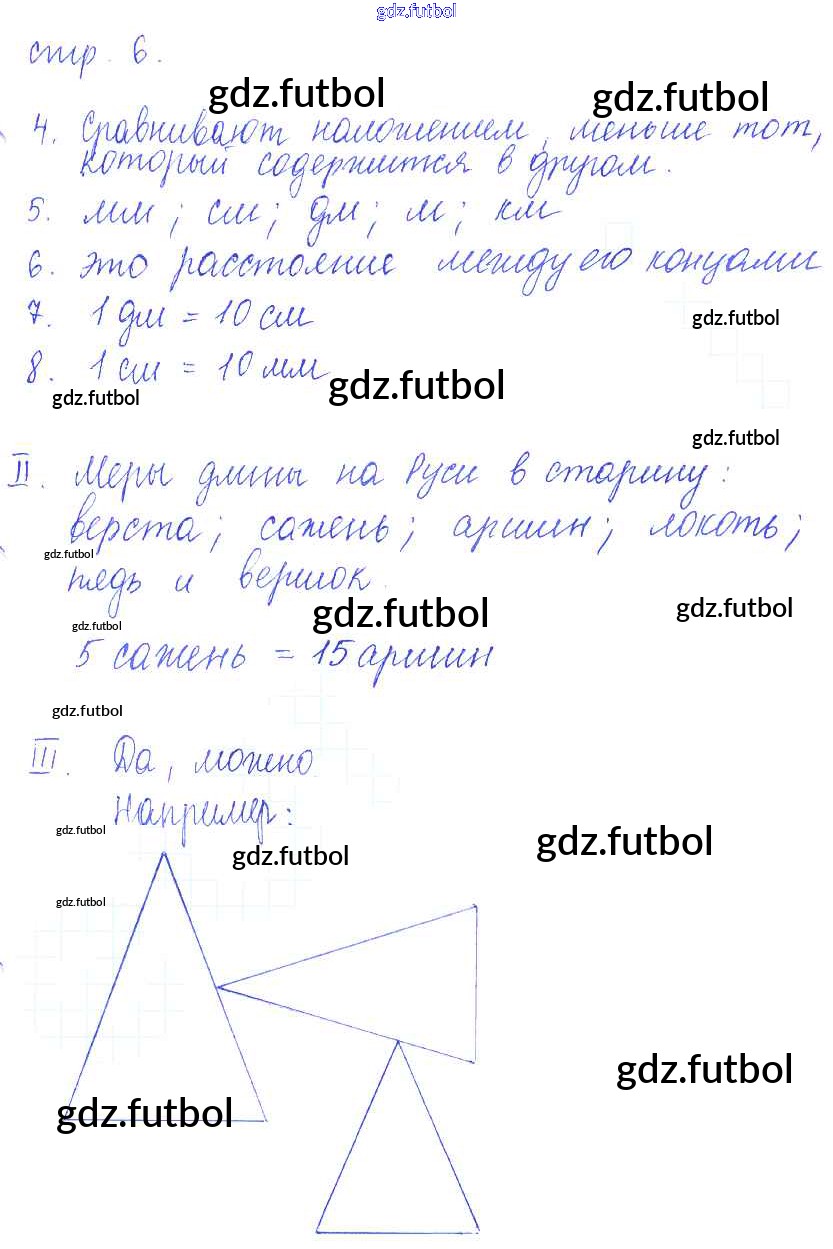 gdz.futbol
стр. 6.
gdz.futbol
gdz.futbol
4. Сравнивают наложением, меньше тот,
который содержится в другом.
5. мм; см; дм; м; км
6. это расстояние между его концами
7. 1 дм = 10 см
gdz.futbol
8. 1 см = 10 мм
gdz.futbol
gdz.futbol
gdz.futbol
II. Меры длины на Руси в старину:
верста; сажень; аршин; локоть;
gdz.futbol
пядь и вершок.
gdz.futbol
gdz.futbol
gdz.futbol
5 сажень = 15 аршин
gdz.futbol
III. Да, можно
Например:
gdz.futbol
gdz.futbol
gdz.futbol
gdz.futbol
gdz.futbol
gdz.futbol